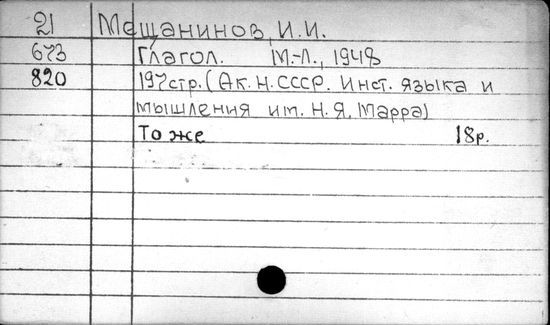 21 Мещанинов, И.И.
673 Глагол. М.-Л., 1948
820 197стр. (Ак. Н. СССР. Инст. языка и
мышления им. Н. Я. Марра)
То же 18р.